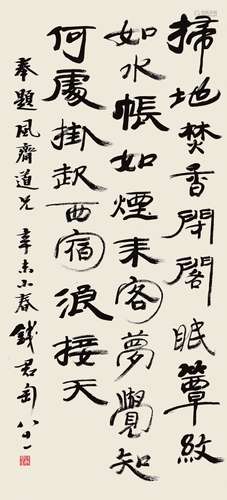 掃地焚香閉閣眠簟紋
如水帳如煙来客夢覺知
何處掛起西窗浪接天
奉題風齊道兄 辛未小春 錢君匋八十一